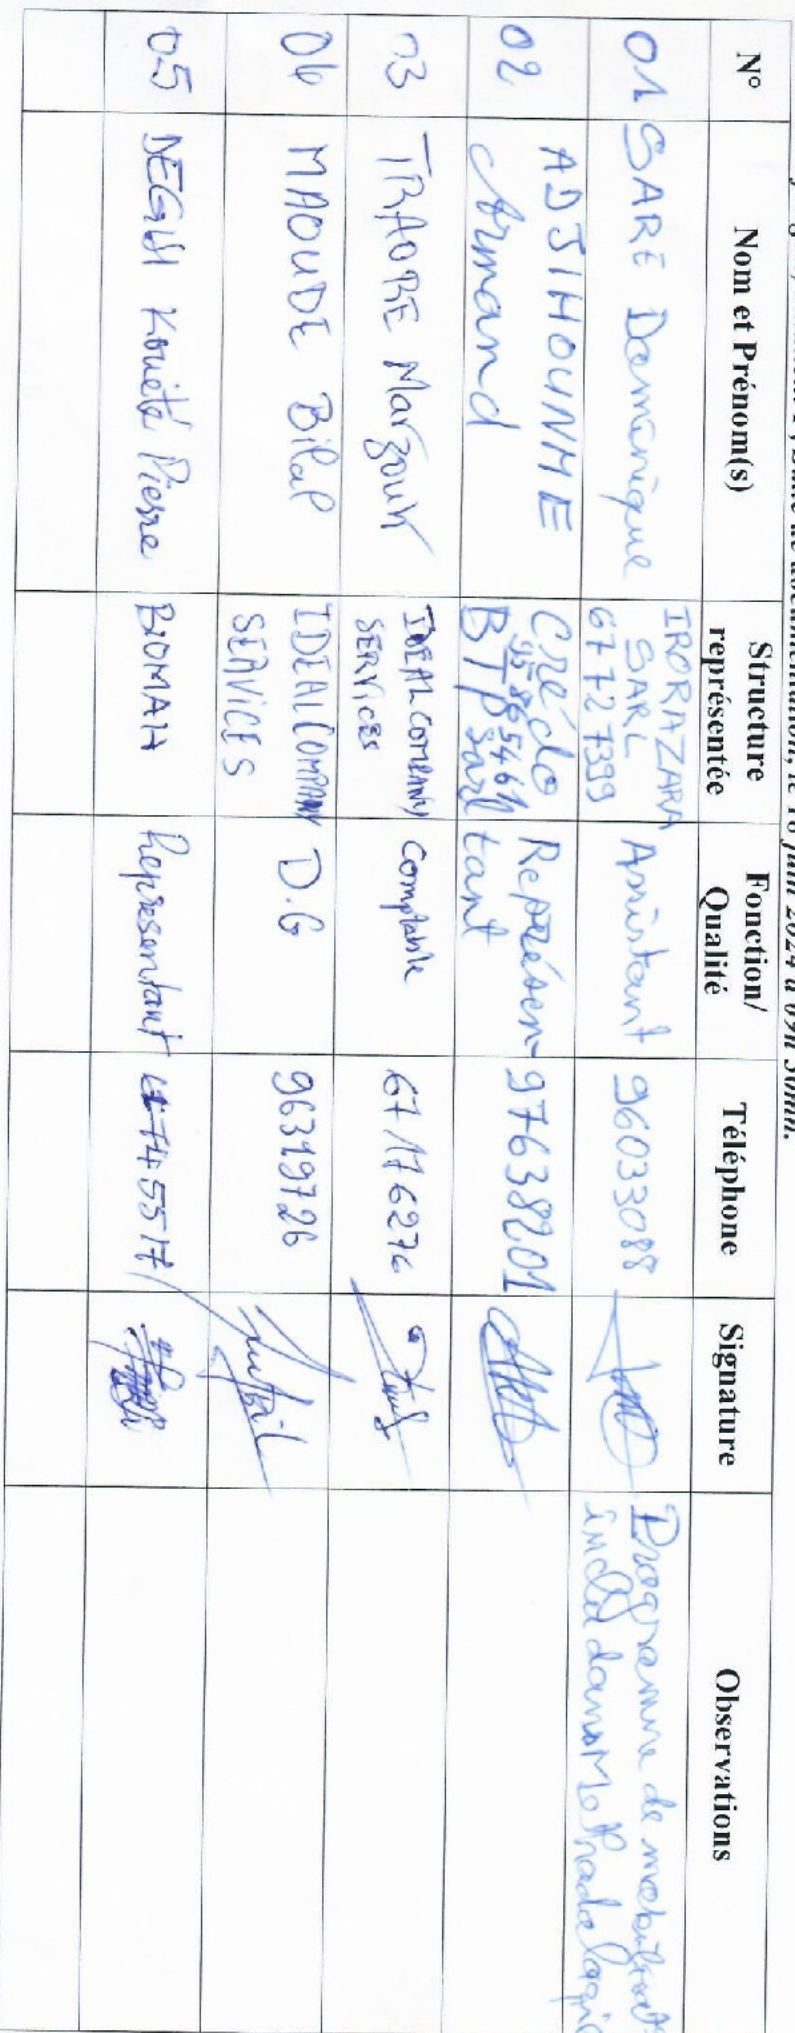 salle de documentation, le 18 juin 2024 à 09h 30mn.
N° Nom et Prénom(s) Structure représentée Fonction/ Qualité Téléphone Signature Observations
01 SARE Dominique IRORAZARA SARL 67727399 Assistant 96033088 Programme de mobilisat° inclu dans Methodologie
02 ADJIHOUNME Armand Crédo 95865461 BTP Sarl Représentant 97638201
03 TRAORE Marzouk IDEAL COMPANY SERVICES Comptable 67176276
04 MAOUDE Bilal IDEAL COMPANY SERVICES D.G 96319726
05 DEGUI Kouété Pierre BIOMAH Représentant